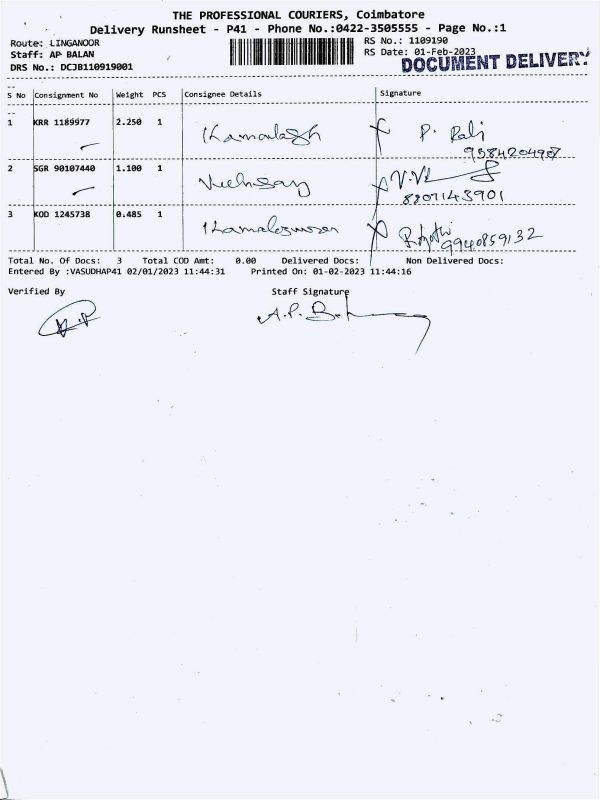 THE PROFESSIONAL COURIERS, Coimbatore
Delivery Runsheet - P41 - Phone No.:0422-3505555 - Page No.:1
Route: LINGANOOR
RS No.: 1109190
Staff: AP BALAN
RS Date: 01-Feb-2023
DRS No.: DCJB110919001
DOCUMENT DELIVERY
S No Consignment No Weight PCS Consignee Details Signature
1 KRR 1189977 2.250 1 Kamalesh P. Rali
9384204907
2 SGR 90107440 1.100 1
8207143901
3 KOD 1245738 0.485 1 Kamaleswaran
9940859132
Total No. Of Docs: 3 Total COD Amt: 0.00 Delivered Docs: Non Delivered Docs:
Entered By :VASUDHAP41 02/01/2023 11:44:31 Printed On: 01-02-2023 11:44:16
Verified By Staff Signature
A.P.